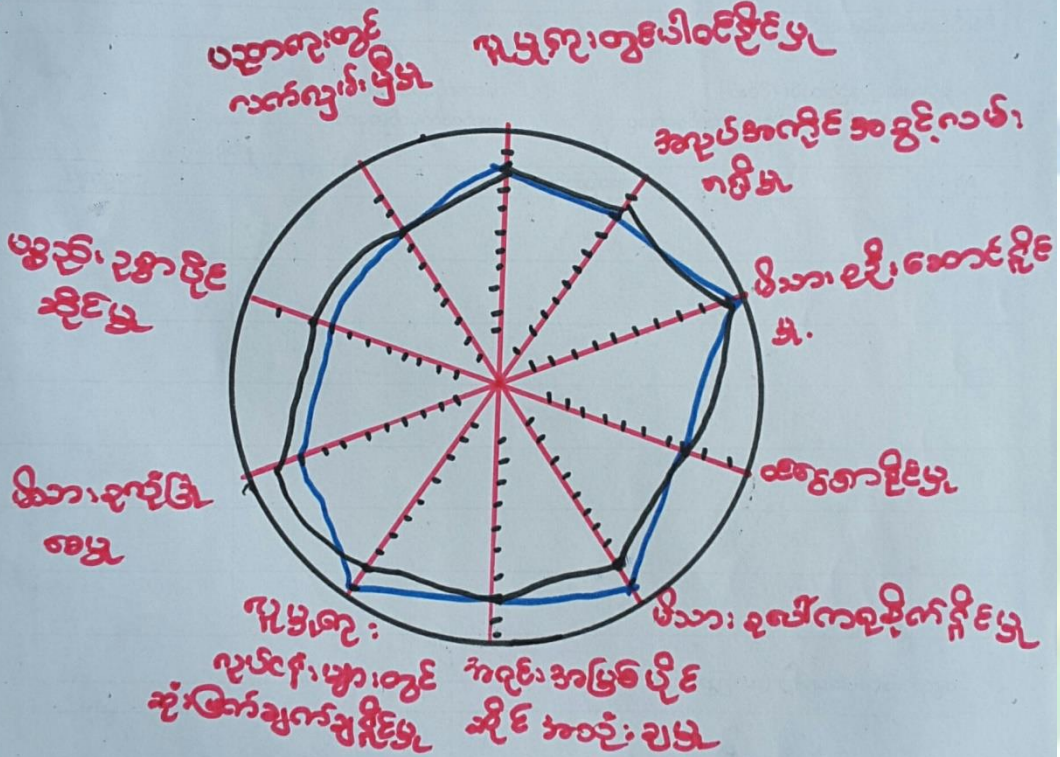 ပညာရေးတွင်
လက်လှမ်းမှီမှု
လူမှုရေးတွင်ပါဝင်နိုင်မှု
အလုပ်အကိုင်အခွင့်လမ်း
ရရှိမှု
မိသားစုဦးဆောင်နိုင်
မှု.
ဝင်ငွေရှာနိုင်မှု
မိသားစုပေါ်ကရုစိုက်နိုင်မှု
အရင်းအမြစ်ပိုင်
ဆိုင် အသုံးချမှု
လူမှုရေး
လုပ်ငန်းများတွင်
ဆုံးဖြတ်ချက်ချနိုင်မှု
မိသားစုလုံခြုံ
စေမှု
ပစ္စည်းဥစ္စာပိုင်
ဆိုင်မှု